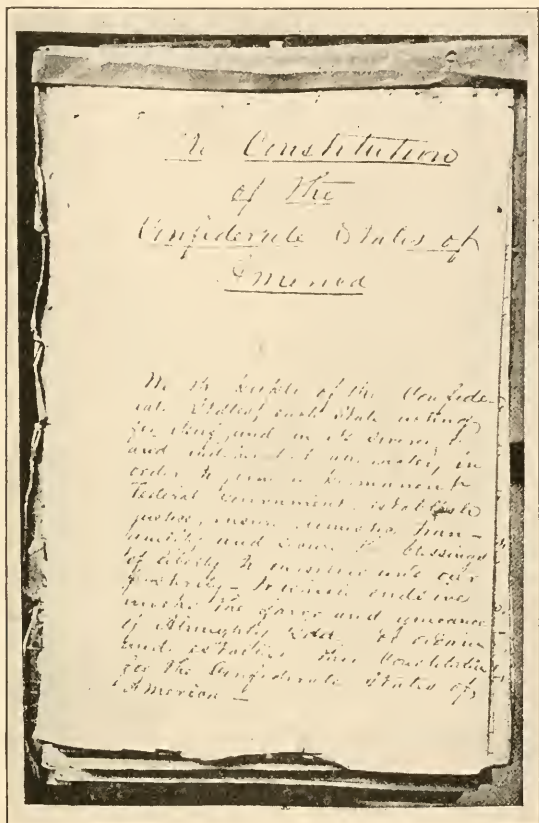 The Constitution
of the
Confederate States of
America
We the people of the Confede-
rate States, each State acting
for itself, and in its sovereign
and independent character, in
order to form a permanent
Federal Government, establish
justice, insure domestic tran-
quility and secure the blessings
of liberty to ourselves and our
posterity – to which ends we
invoke the favor and guidance
of Almighty God – do ordain
and establish this Constitution
for the Confederate States of
America –